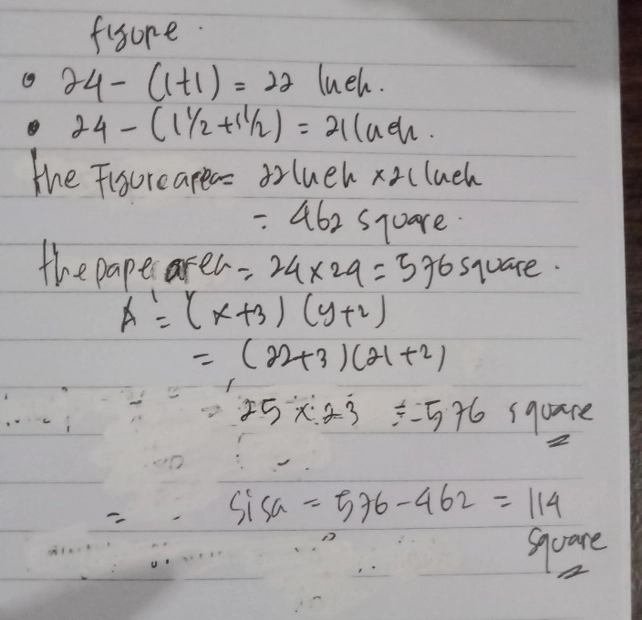 figure.
• 24 - (1+1) = 22 Inch.
• 24 - (1 1/2 + 1 1/2) = 21 Inch.
the Figure area = 22 Inch x 21 Inch
= 462 square.
the pape area = 24 x 24 = 576 square.
A = (x+3) (y+2)
= (22+3) (21+2)
= 25 x 23 = 576 square
= Sisa = 576 - 462 = 114
square